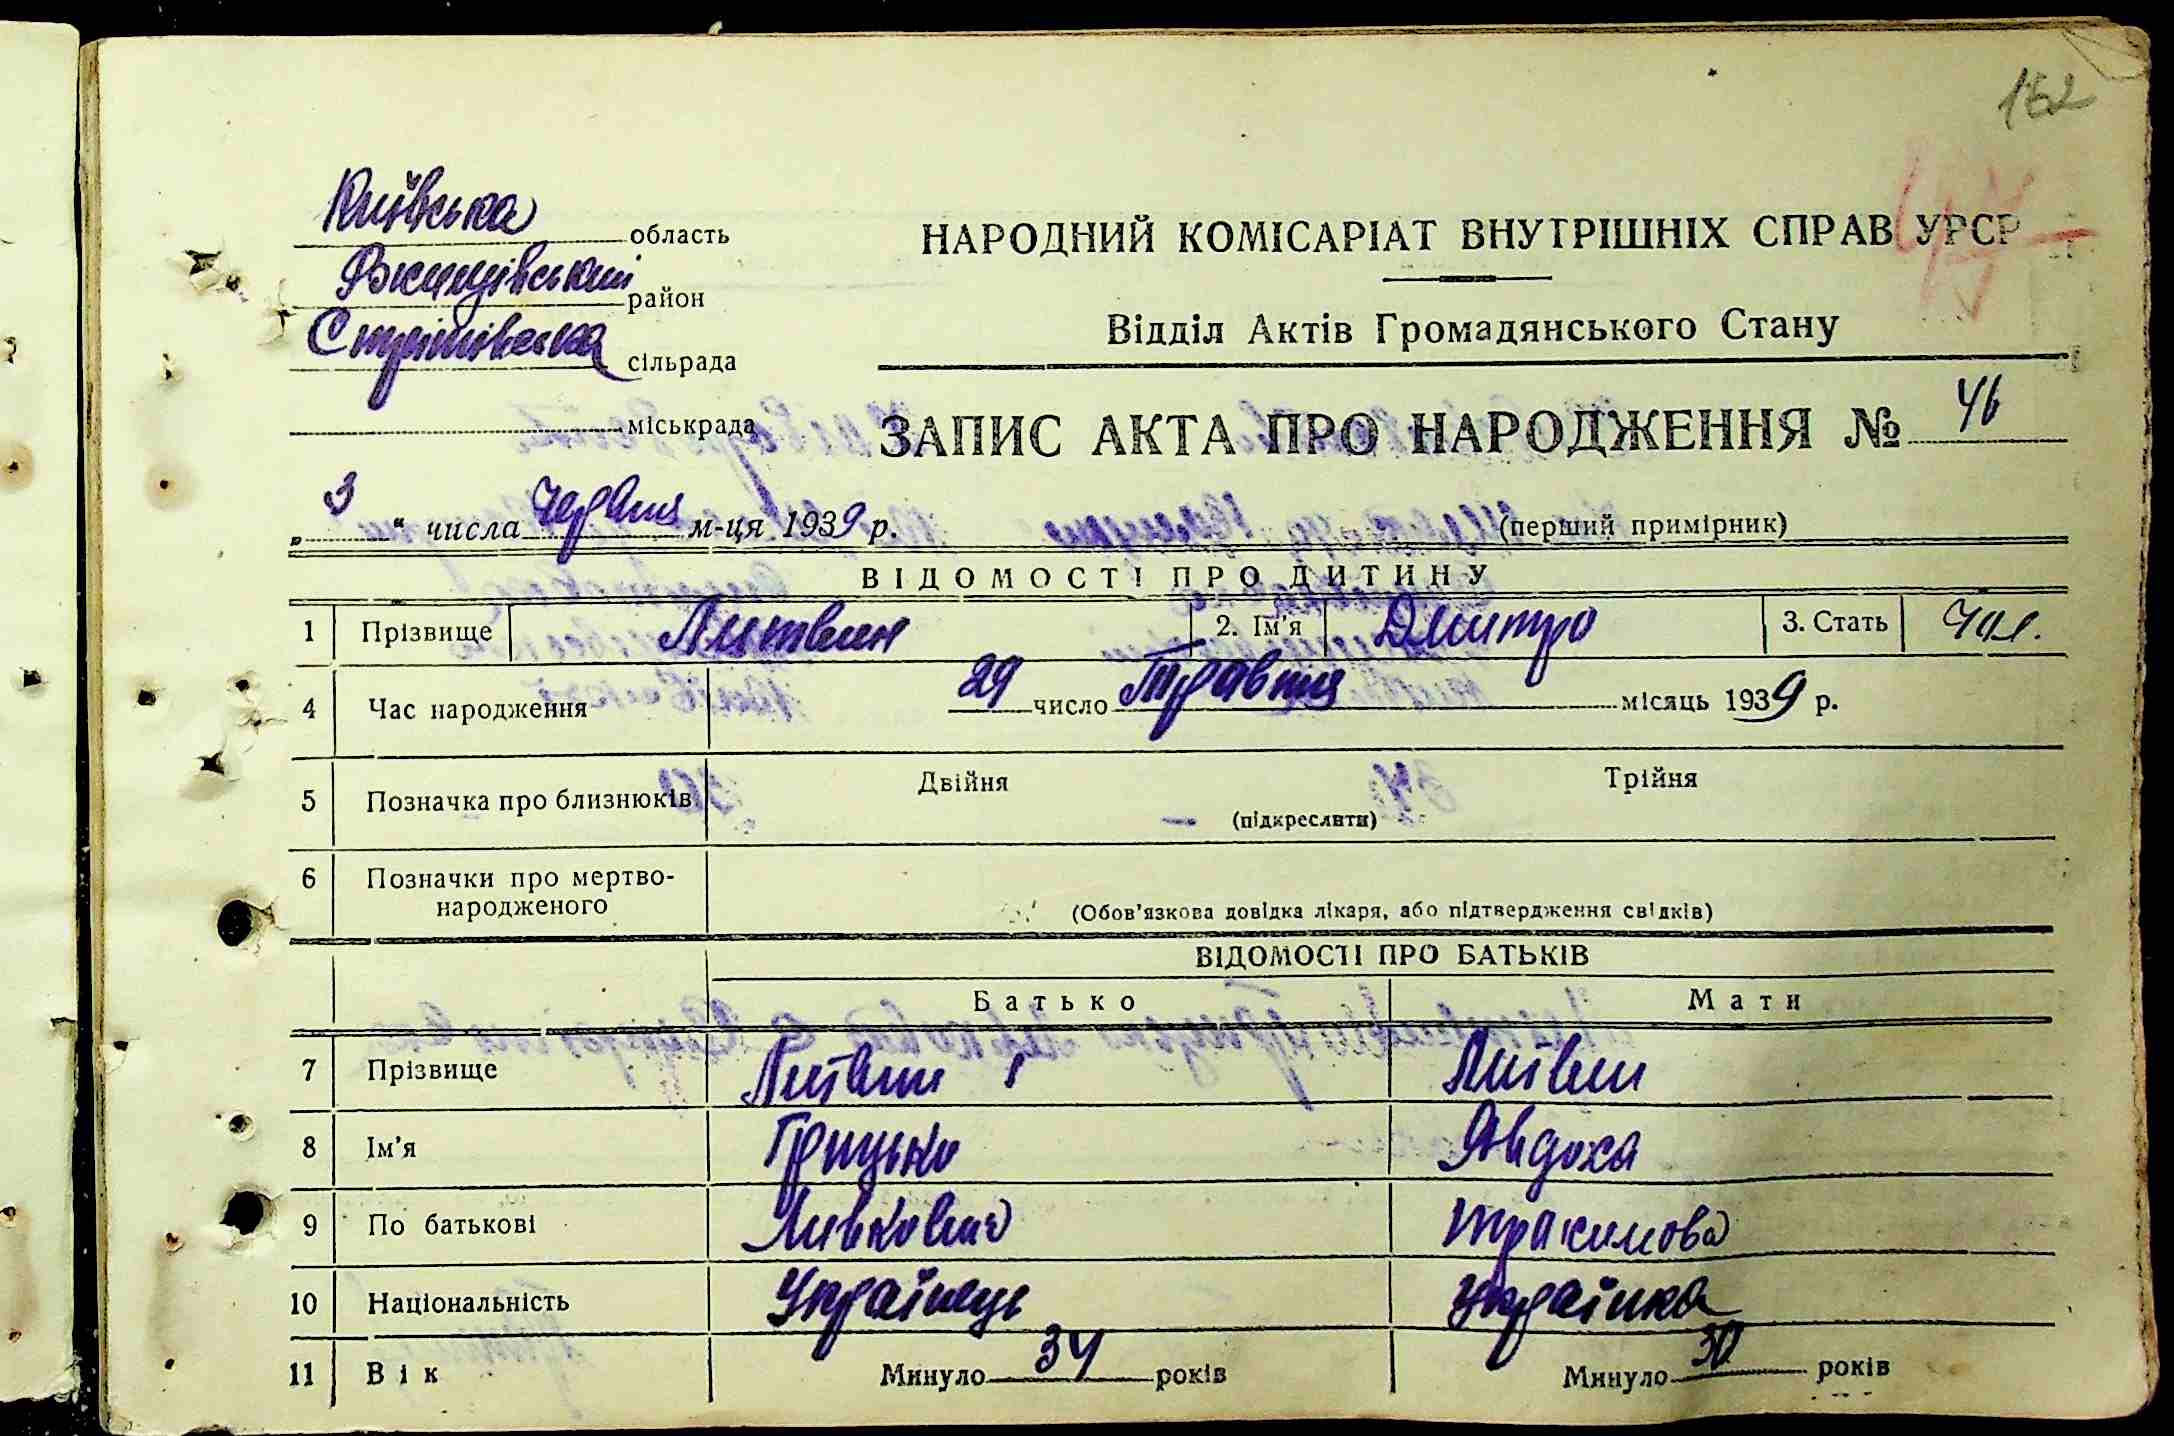 162
Київська область
Ржищівський район
Стритівська сільрада
міськрада
НАРОДНИЙ КОМІСАРІАТ ВНУТРІШНІХ СПРАВ УРСР
Відділ Актів Громадянського Стану
ЗАПИС АКТА ПРО НАРОДЖЕННЯ № 46
„ 3 “ числа червня м-ця 1939 р. (перший примірник)
ВІДОМОСТІ ПРО ДИТИНУ
1 Прізвище Литвин 2. Ім'я Дмитро 3. Стать чол.
4 Час народження 29 число Травня місяць 1939 р.
5 Позначка про близнюків Двійня – (підкреслити) Трійня
6 Позначки про мертво-
народженого (Обов'язкова довідка лікаря, або підтвердження свідків)
ВІДОМОСТІ ПРО БАТЬКІВ
Батько Мати
7 Прізвище Литвин Литвин
8 Ім'я Грицько Явдоха
9 По батькові Левкович Тракимова
10 Національність Українець Українка
11 Вік Минуло 34 років Минуло 30 років